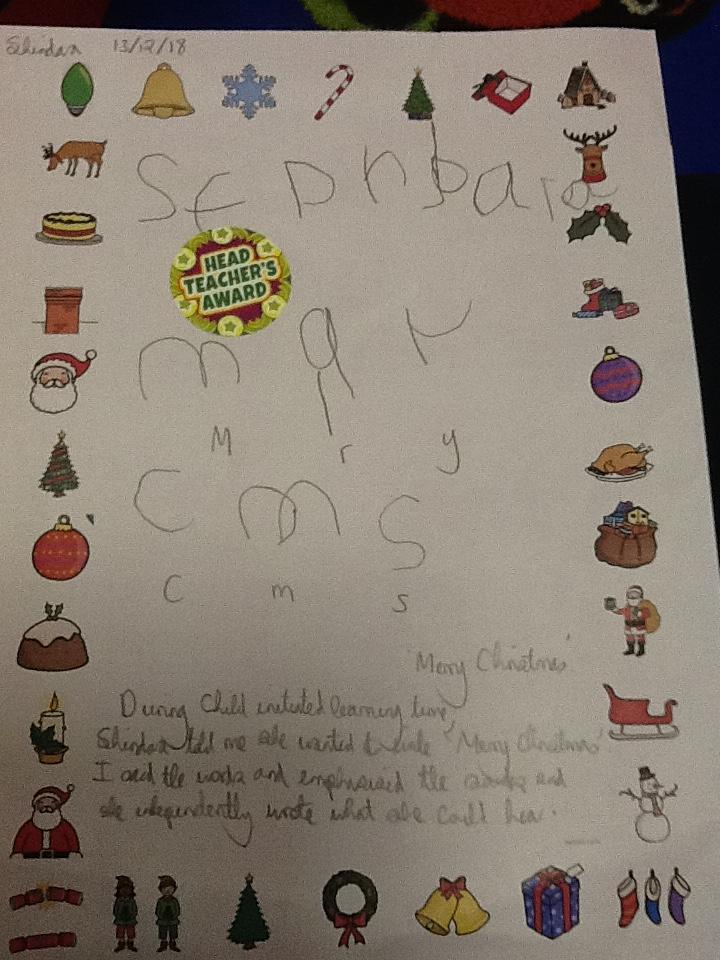 13/12/18
HEAD
TEACHER'S
AWARD
m q r
M r y
c m s
c m s
'Merry Christmas'
During Child initiated learning time,
told me she wanted to write 'Merry Christmas'
I said the words and emphasised the sounds and
she independently wrote what she could hear.